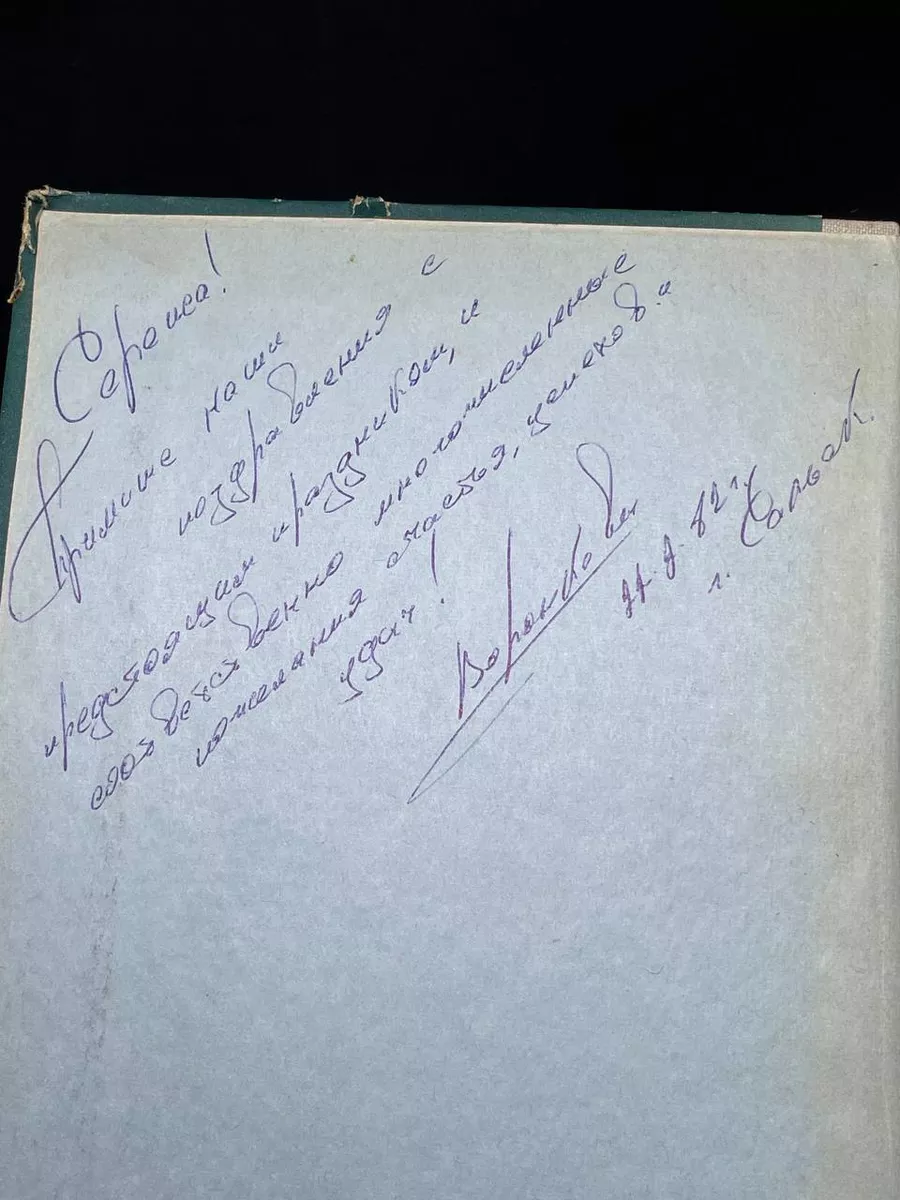 Сережа!
Примите наши
поздравления с
предстоящим праздником, и
соответственно многочисленные
пожелания счастья, успехов и
удач!
Воронковы
82 г.
г.